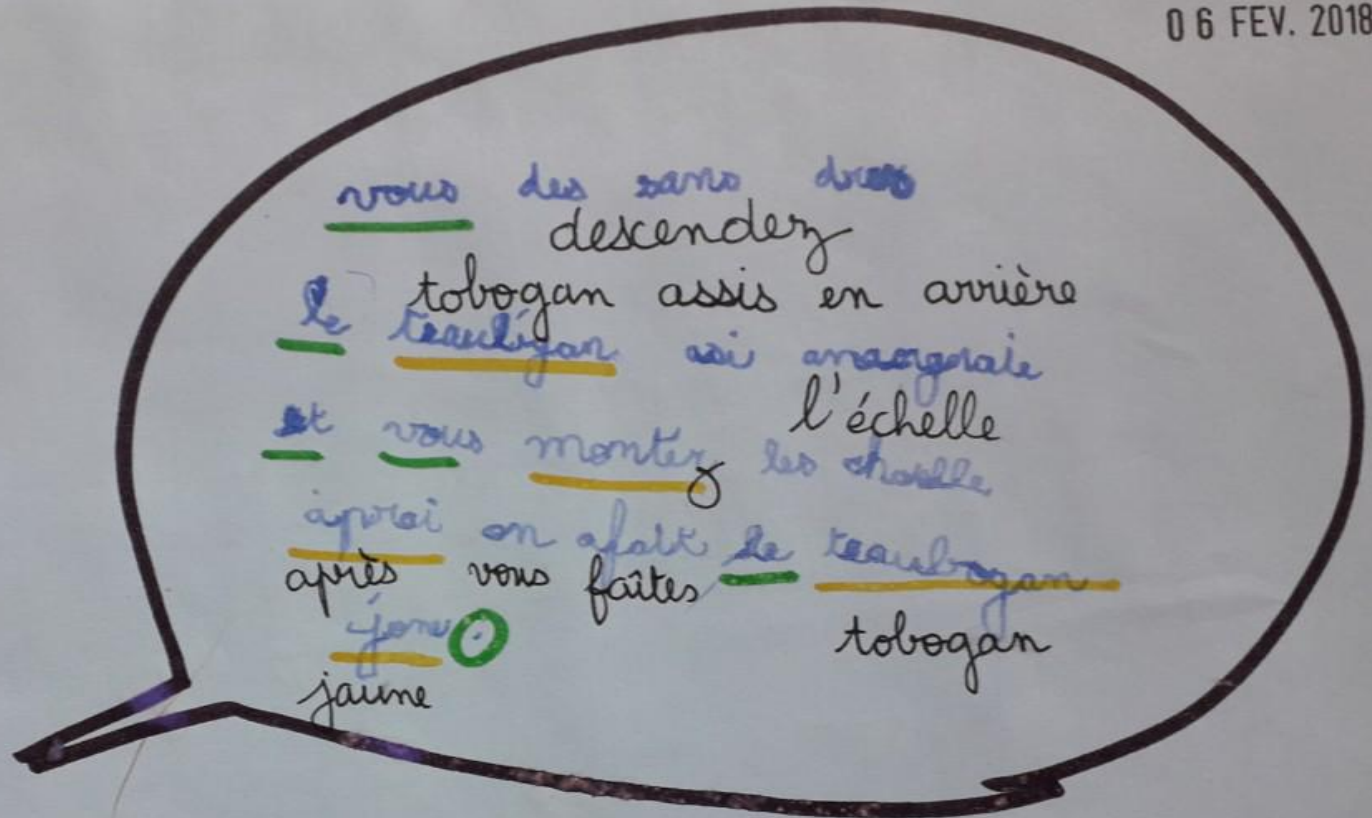 06 FEV. 2018
vous des sans
descendez
tobogan assis en arrière
le teaubigan asi
l'échelle
et vous montez les
aprai on afait le teaubogan
après vous faîtes
jone.
tobogan
jaune